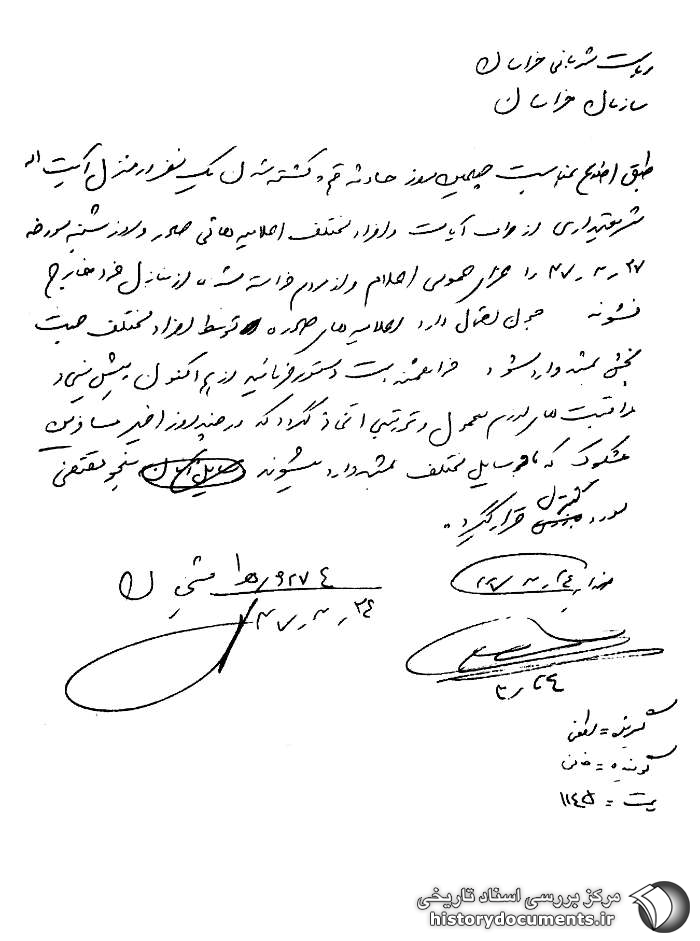 ریاست شهربانی خراسان
سازمان خراسان
طبق اطلاع بمناسبت چهلمین روز حادثه قم و کشته شدن یک نفر در منزل آیت اله
شریعتمداری از طرف آیات و افراد مختلف اعلامیه هائی صادر و روز شنبه مورخه
۳۷٫۲٫۲۷ را عزای عمومی اعلام و از مردم خواسته شده از منازل خود خارج
نشوند احتمال دارد اعلامیه های صادره توسط افراد مختلف جهت
پخش بمشهد وارد شود خواهشمند است دستور فرمائید از هم اکنون پیش بینی و
مراقبت های لازم معمول و ترتیبی اتخاذ گردد که در چند روز اخیر مسافرین
مشکوک که با وسایل مختلف بمشهد وارد میشوند بنحو مقتضی
مورد کنترل قرار گیرد.
۹۲۷۴ شیخان
۳۷٫۲٫۲۴
۲٫۲۴
گیرنده = لطفی
گوینده = خانی
۱۱۴۵
مرکز بررسی اسناد تاریخی
historydocuments.ir